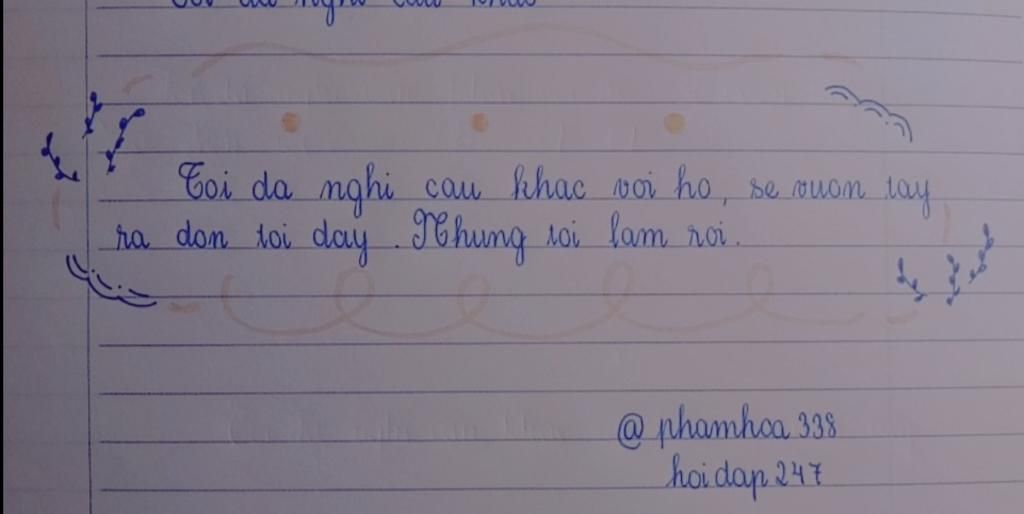 Toi da nghi cau khac
Toi da nghi cau khac voi ho, se vuon tay
ra don toi day. Nhung toi lam roi.
@ phamhoa 338
hoidap 247